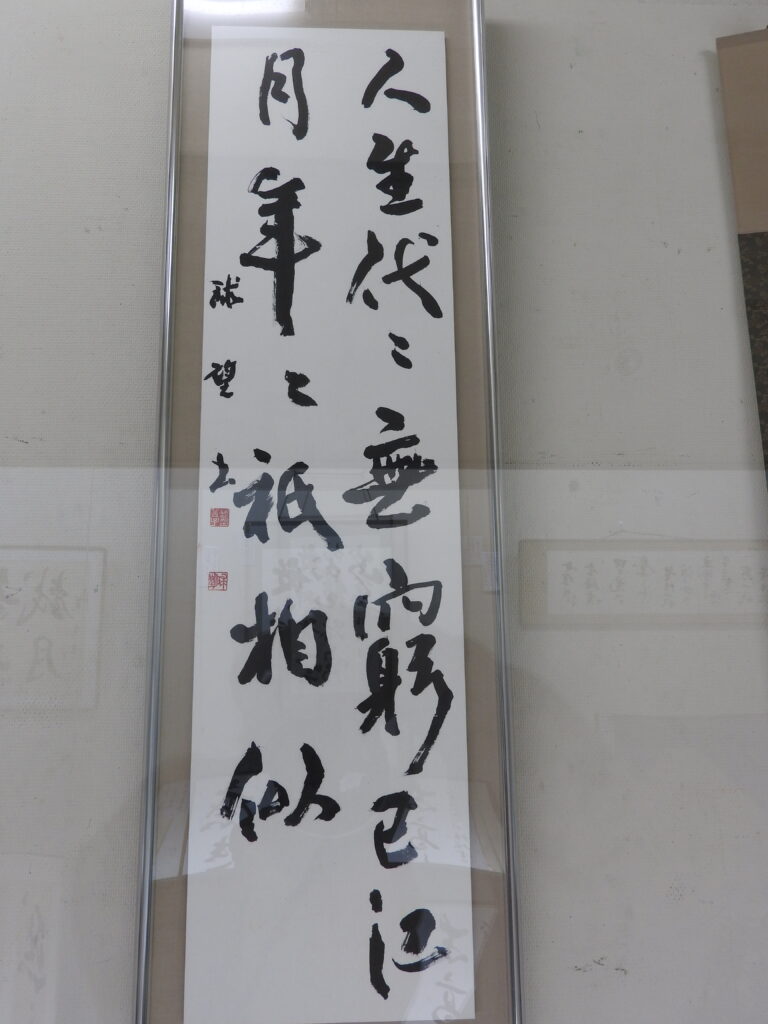 人生代〻無窮已江
月年〻祇相似
球望書